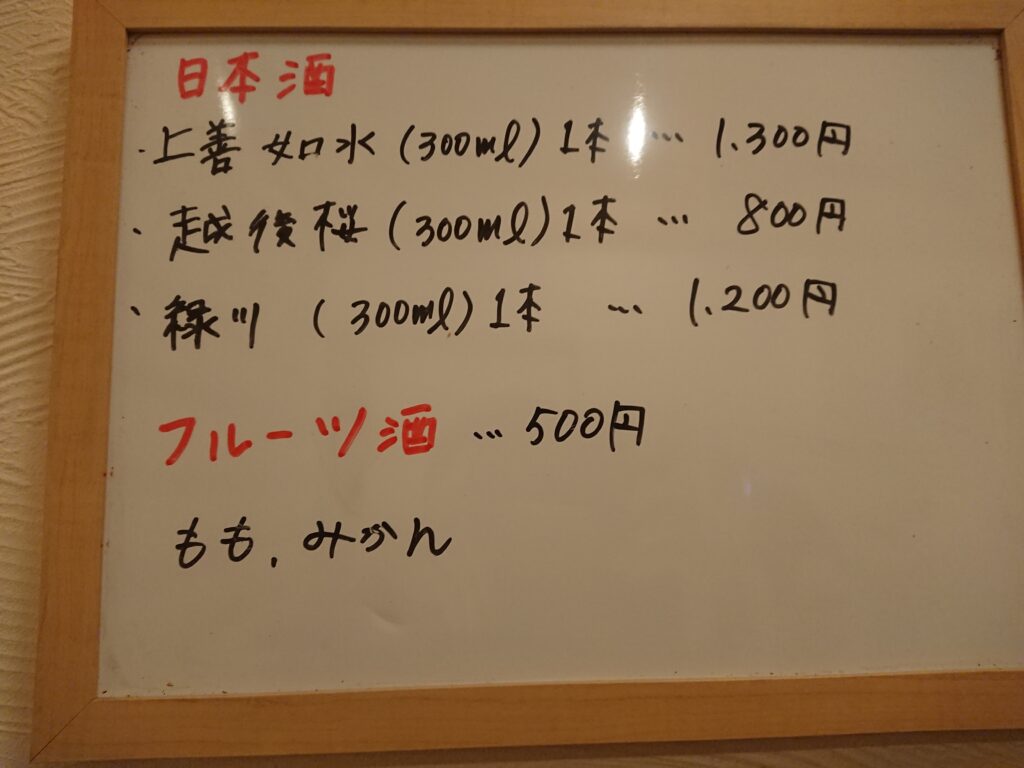 日本酒
・上善如水(300ml)1本 … 1.300円
・越後桜(300ml)1本 … 800円
・緑川 (300ml)1本 … 1.200円
フルーツ酒 … 500円
もも.みかん